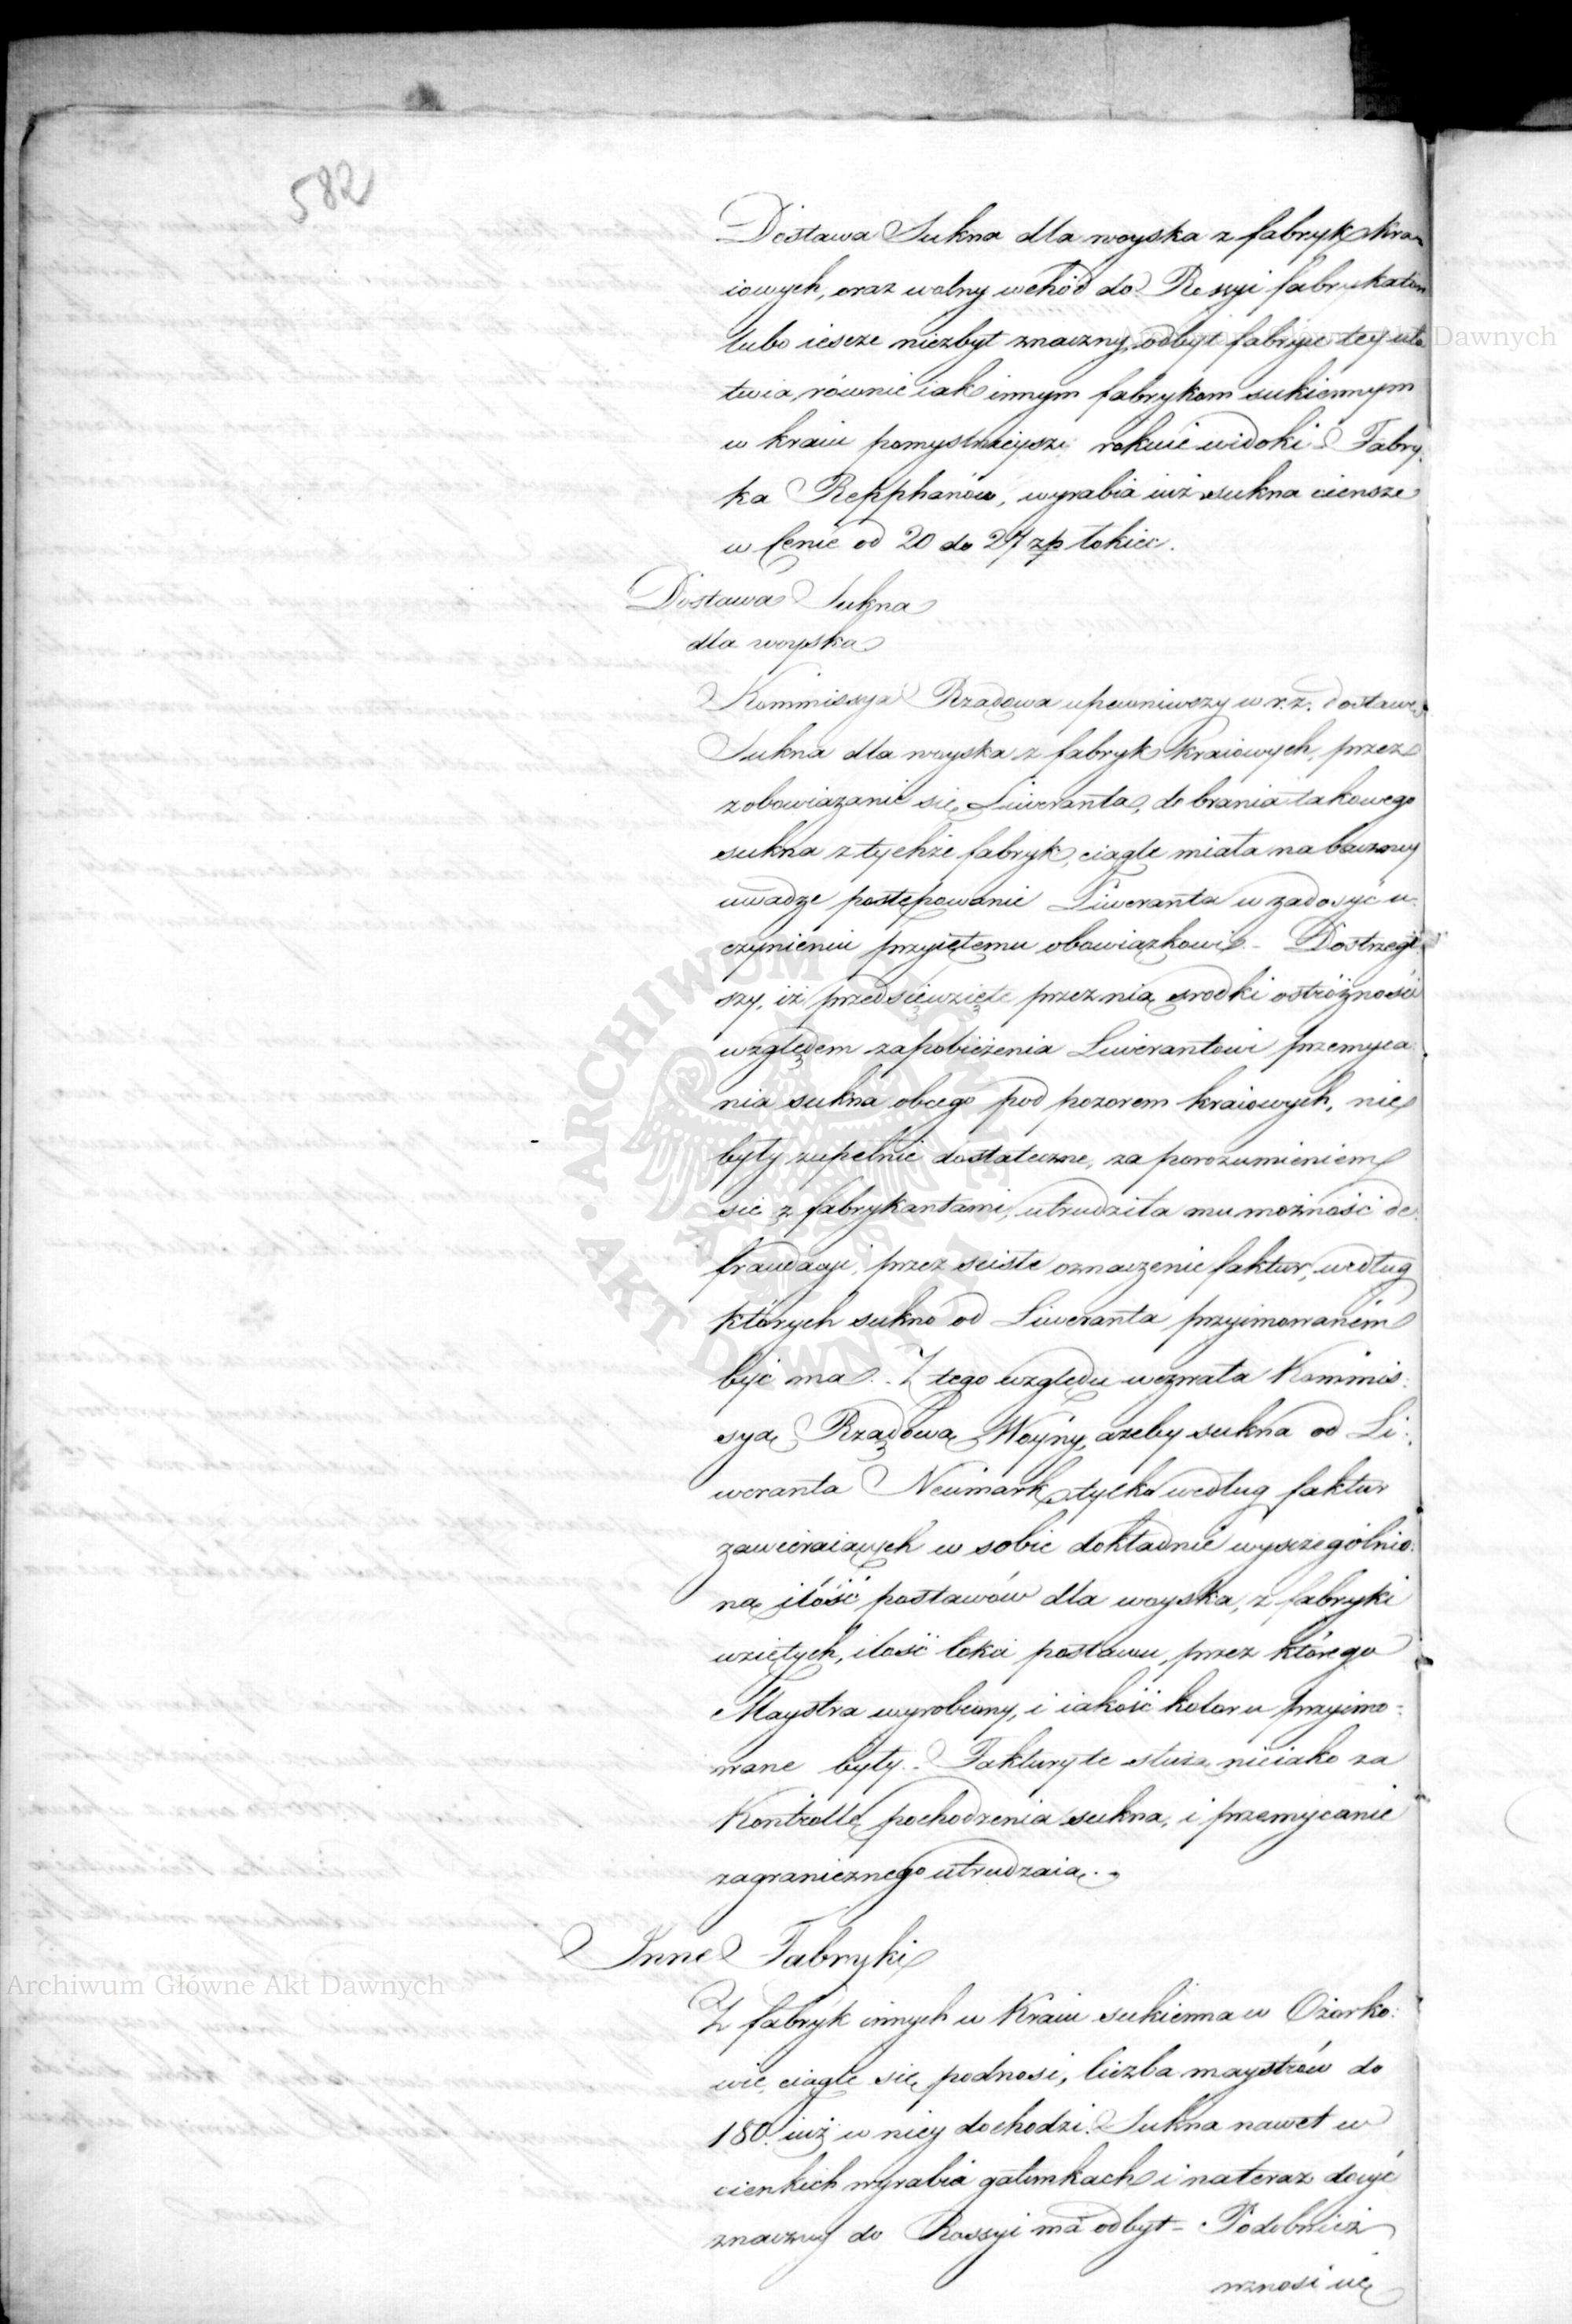 582
Dostawa Sukna dla woyska z fabryk kra-
iowych, oraz wolny wchód do Rossyi fabrykatów
lubo ieszcze niezbyt znaczny, odbyt fabryce tey uła
twia, równie iak innym fabrykom sukiennym
w kraiu pomyślnieysze rokuie widoki - Fabry.
ka Repphanów, wyrabia iuż sukna ciensze
w Cenie od 20 do 27 zp łokieć.
Dostawa Sukna
dla woyska
Kommissya Rządowa upewniwszy w r. z. dostawę
Sukna dla woyska z fabryk kraiowych, przez
zobowiązanie się Liweranta, do brania takowego
sukna z tychże fabryk, ciągle miała na baczney
uwadze postępowanie Liweranta w zadosyć u-
czynieniu przyiętemu obowiązkowi. - Dostrzegł
szy, iż przedsięwzięte przez nią srodki ostróżności
względem zapobieżenia Liwerantowi przemyca
nia sukna obcego pod pozorem kraiowych, nie
były zupełnie dostateczne, za porozumieniem
się z fabrykantami, utrudziła mu możność de
fraudacyi, przez sciste oznaczenie faktur, według
których sukno od Liweranta przyimowaném
być ma. - Z tego względu wezwała Kommis:
syą Rządową Woyny, ażeby sukna od Li:
weranta Neümark, tylko według faktur
zawieraiących w sobie dokładnie wyszczególnio:
ną ilość postawów dla woyska, z fabryki
wziętych, ilość łokci postawu, przez którego
Maystra wyrobiony, i iakość koloru przyimo-
wane były. - Faktury te służą nieiako za
Kontrollę pochodzenia sukna, i przemycanie
zagranicznego utrudzaią. -
Inne Fabryki
Z fabryk innych w Kraiu sukienna w Ozorko:
wie, ciągle się podnosi, liczba maystrów do
180. iuż w niey dochodzi. Sukna nawet w
cienkich wyrabia gatunkach i na teraz dosyć
znaczny do Rossyi ma odbyt - Podobnież
wznosi się
Archiwum Główne Akt Dawnych
Archiwum Główne Akt Dawnych
ARCHIWUM GŁÓWNE
AKT DAWNYCH